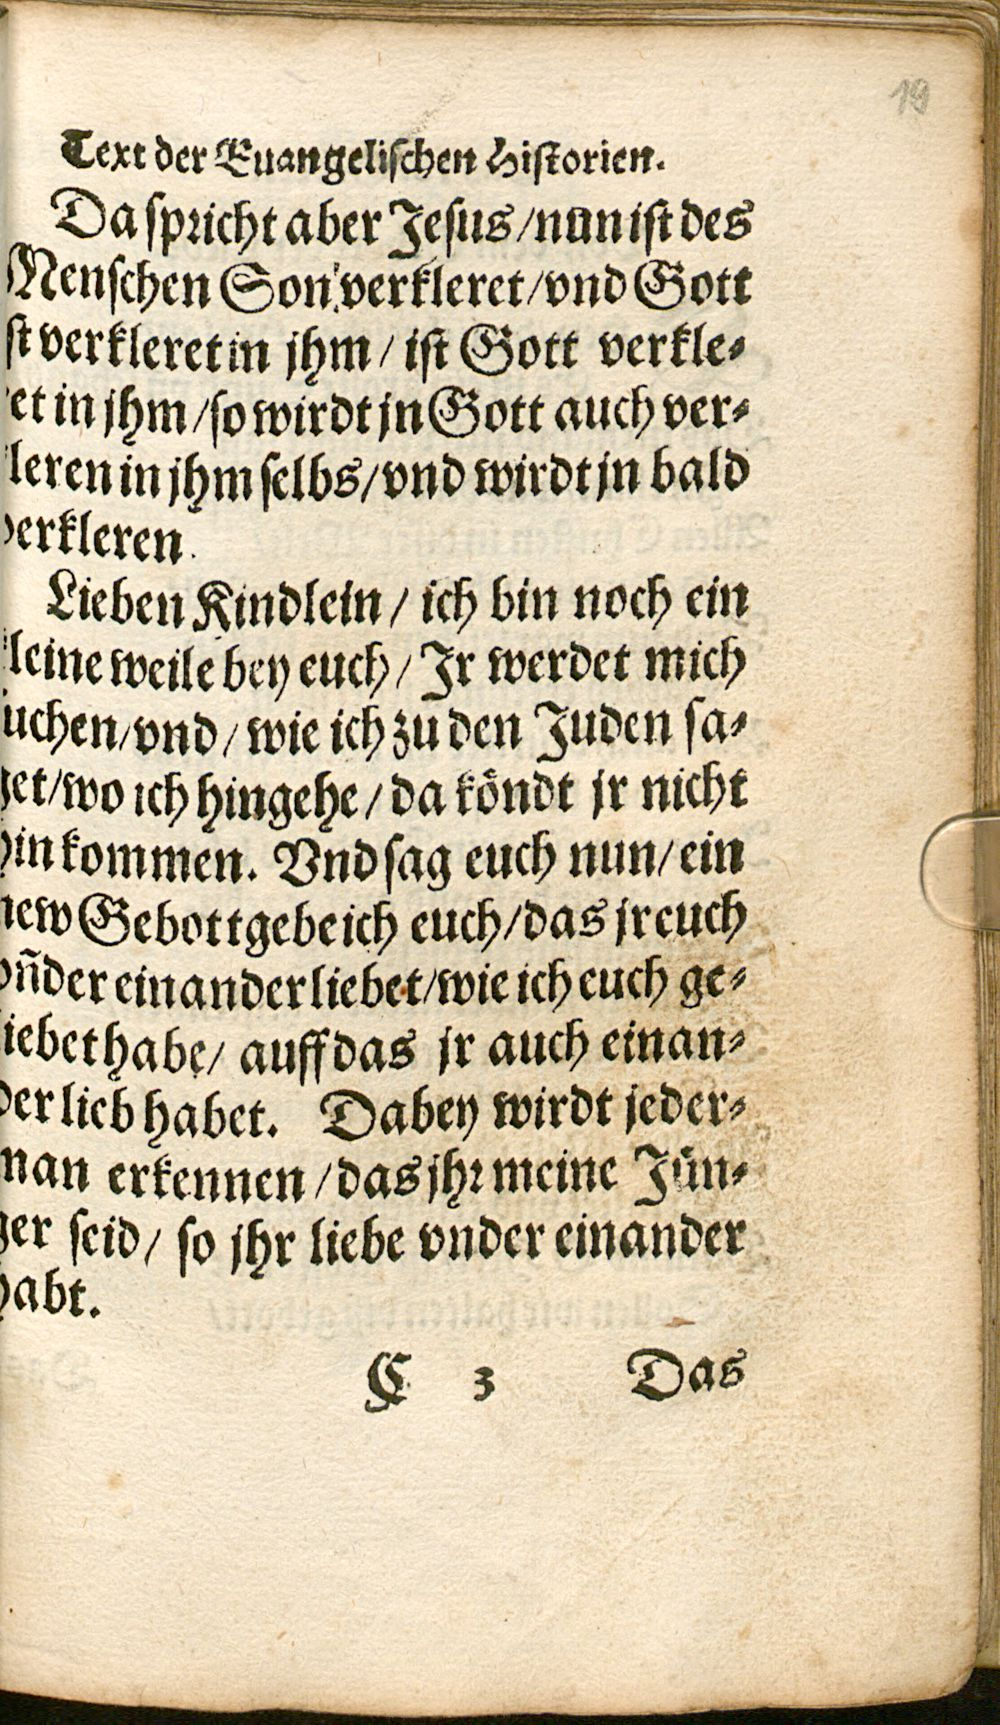 19
Text der Euangelischen Historien.
Da spricht aber Jesus/nun ist des
Menschen Son verkleret/vnd Gott
st verkleret in jhm/ ist Gott verkle-
et in jhm/so wirdt jn Gott auch ver-
leren in jhm selbs/vnd wirdt jn bald
verkleren.
Lieben Kindlein/ ich bin noch ein
kleine weile bey euch/ Jr werdet mich
uchen/vnd/ wie ich zu den Juden sa-
get/wo ich hingehe/ da köndt jr nicht
hin kommen. Vnd sag euch nun/ ein
new Gebott gebe ich euch/das jr euch
vñder einander liebet/wie ich euch ge-
liebet habe/ auff das jr auch einan-
der lieb habet. Dabey wirdt jeder-
man erkennen/das jhr meine Jün-
ger seid/ so jhr liebe vnder einander
habt.
C 3 Das